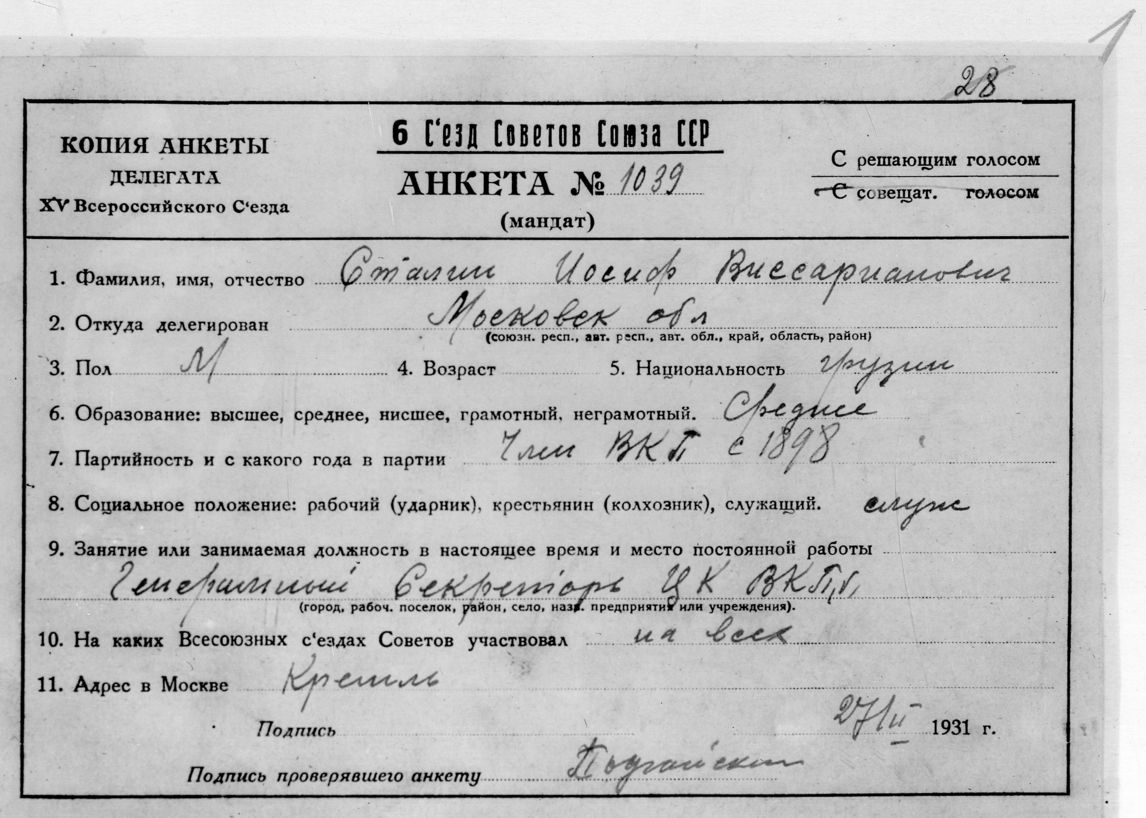 1
28
КОПИЯ АНКЕТЫ
ДЕЛЕГАТА
XV Всероссийского С‘езда
6 С‘езд Советов Союза ССР
АНКЕТА № 1039
(мандат)
С решающим голосом
С совещат. голосом
1. Фамилия, имя, отчество Сталин Иосиф Виссарианович
2. Откуда делегирован Московск обл
(союзн. респ., авт. респ., авт. обл., край, область, район)
3. Пол М 4. Возраст 5. Национальность грузин
6. Образование: высшее, среднее, нисшее, грамотный, неграмотный. Среднее
7. Партийность и с какого года в партии Член ВКП с 1898
8. Социальное положение: рабочий (ударник), крестьянин (колхозник), служащий. служ
9. Занятие или занимаемая должность в настоящее время и место постоянной работы
Генеральный Секретарь ЦК ВКП,б,
(город, рабоч. поселок, район, село, назв. предприятия или учреждения).
10. На каких Всесоюзных с‘ездах Советов участвовал на всех
11. Адрес в Москве Кремль
Подпись 27/II 1931 г.
Подпись проверявшего анкету